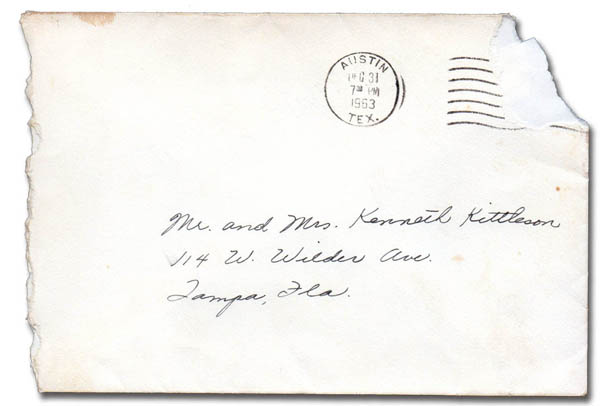 AUSTIN
DEC 31
7 30 PM
1963
TEX.
Mr. and Mrs. Kenneth Kittleson
114 W. Wilder Ave.
Tampa, Fla.